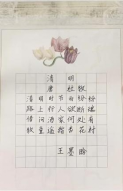 清明
唐 杜牧
清明时节雨纷纷
路上行人欲断魂
借问酒家何处有
牧童遥指杏花村
王墨晗